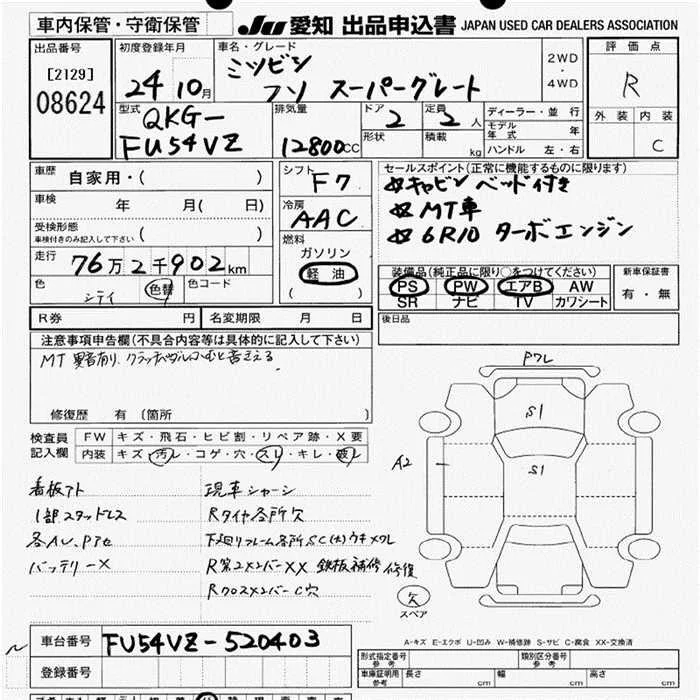 車内保管・守衛保管
JU 愛知 出品申込書 JAPAN USED CAR DEALERS ASSOCIATION
出品番号
[2129]
08624
初度登録年月
24 10月
車名・グレード
ミツビシ
フソ スーパーグレート
2WD
・
4WD
評価点
R
外装 内装
C
型式
QKG-
FU54VZ
排気量
12800cc
ドア 2
形状
定員 2人
積載 kg
ディーラー・並行
モデル年式 年
ハンドル 左・右
車歴 自家用・( )
車検 年 月( 日)
受検形態
車検付きのみ記入して下さい ( )
走行 76万2千902km
色 シテイ 色替 色コード
シフト F7
冷房 AAC
燃料
ガソリン
軽油
( )
セールスポイント(正常に機能するものに限ります)
キャビン ベッド付き
MT車
6R10 ターボエンジン
装備品(純正品に限り○をつけてください)
PS PW エアB AW
SR ナビ TV カワシート
新車保証書
有・無
R券 円 名変期限 月 日
後日品
注意事項申告欄(不具合内容等は具体的に記入して下さい)
MT 異音有り、クラッチペダルふむと音きえる
修復歴 有 (箇所 )
検査員
記入欄
FW キズ・飛石・ヒビ割・リペア跡・X要
内装 キズ・汚レ・コゲ・穴・スレ・キレ・破レ
看板アト
1部スタッドレス
バッテリーX
現車シャーシ
Rタイヤ各所欠
R第2メンバーXX 鉄板補修 修復
RクロスメンバーC穴
Pワレ
S1
S1
A2
欠
スペア
A-キズ E-エクボ U-凹み W-補修跡 S-サビ C-腐食 XX-交換済
車台番号 FU54VZ-520403
登録番号
形式指定番号 参考
類別区分番号 参考
車庫証明用 参考 長さ cm 幅 cm 高さ cm